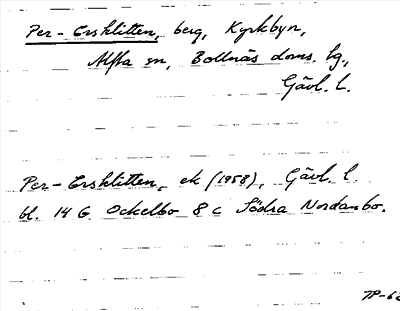 Per-Ersklitten, berg, Kyrkbyn,
Alfta sn, Bollnäs doms. hg.,
Gävl. l.
Per-Ersklitten, ek (1958), Gävl. l.
bl. 14 G Ockelbo 8 c Södra Nordanbo.
TP-62